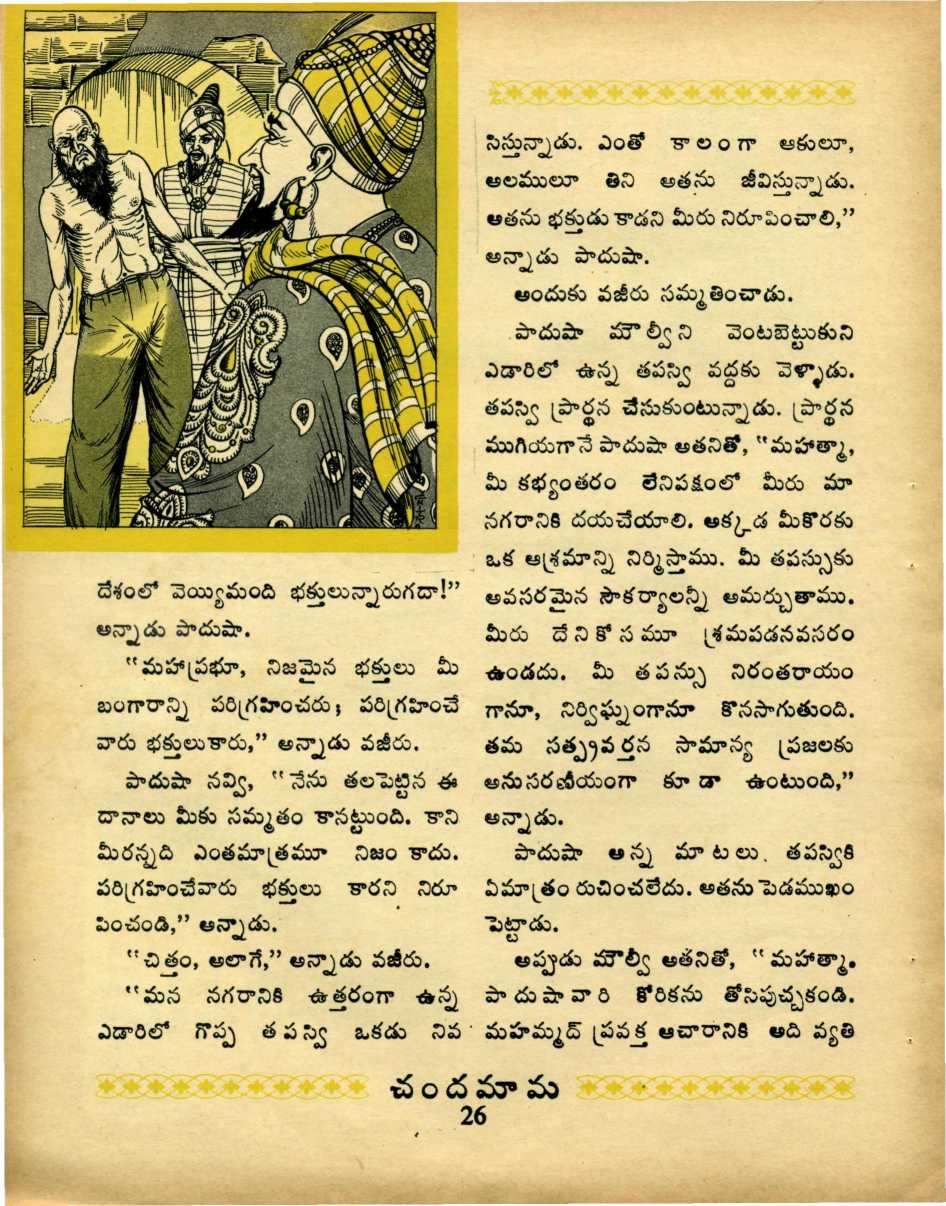 దేశంలో వెయ్యిమంది భక్తులున్నారుగదా!”
అన్నాడు పాదుషా.
“మహాప్రభూ, నిజమైన భక్తులు మీ
బంగారాన్ని పరిగ్రహించరు; పరిగ్రహించే
వారు భక్తులుకారు,” అన్నాడు వజీరు.
పాదుషా నవ్వి, “నేను తలపెట్టిన ఈ
దానాలు మీకు సమ్మతం కానట్టుంది. కాని
మీరన్నది ఎంతమాత్రమూ నిజం కాదు.
పరిగ్రహించేవారు భక్తులు కారని నిరూ
పించండి,” అన్నాడు.
“చిత్తం, అలాగే,” అన్నాడు వజీరు.
“మన నగరానికి ఉత్తరంగా ఉన్న
ఎడారిలో గొప్ప తపస్వి ఒకడు నివ
సిస్తున్నాడు. ఎంతో కాలంగా ఆకులూ,
అలములూ తిని అతను జీవిస్తున్నాడు.
అతను భక్తుడు కాడని మీరు నిరూపించాలి,”
అన్నాడు పాదుషా.
అందుకు వజీరు సమ్మతించాడు.
పాదుషా మౌల్వీని వెంటబెట్టుకుని
ఎడారిలో ఉన్న తపస్వి వద్దకు వెళ్ళాడు.
తపస్వి ప్రార్థన చేసుకుంటున్నాడు. ప్రార్థన
ముగియగానే పాదుషా అతనితో, “మహాత్మా,
మీ కభ్యంతరం లేనిపక్షంలో మీరు మా
నగరానికి దయచేయాలి. అక్కడ మీకొరకు
ఒక ఆశ్రమాన్ని నిర్మిస్తాము. మీ తపస్సుకు
అవసరమైన సౌకర్యాలన్నీ అమర్చుతాము.
మీరు దేనికోసమూ శ్రమపడనవసరం
ఉండదు. మీ తపస్సు నిరంతరాయం
గానూ, నిర్విఘ్నంగానూ కొనసాగుతుంది.
తమ సత్ప్రవర్తన సామాన్య ప్రజలకు
అనుసరణీయంగా కూడా ఉంటుంది,”
అన్నాడు.
పాదుషా అన్న మాటలు తపస్వికి
ఏమాత్రం రుచించలేదు. అతను పెడముఖం
పెట్టాడు.
అప్పుడు మౌల్వీ అతనితో, “మహాత్మా.
పాదుషావారి కోరికను తోసిపుచ్చకండి.
మహమ్మద్ ప్రవక్త ఆచారానికి అది వ్యతి
చందమామ
26